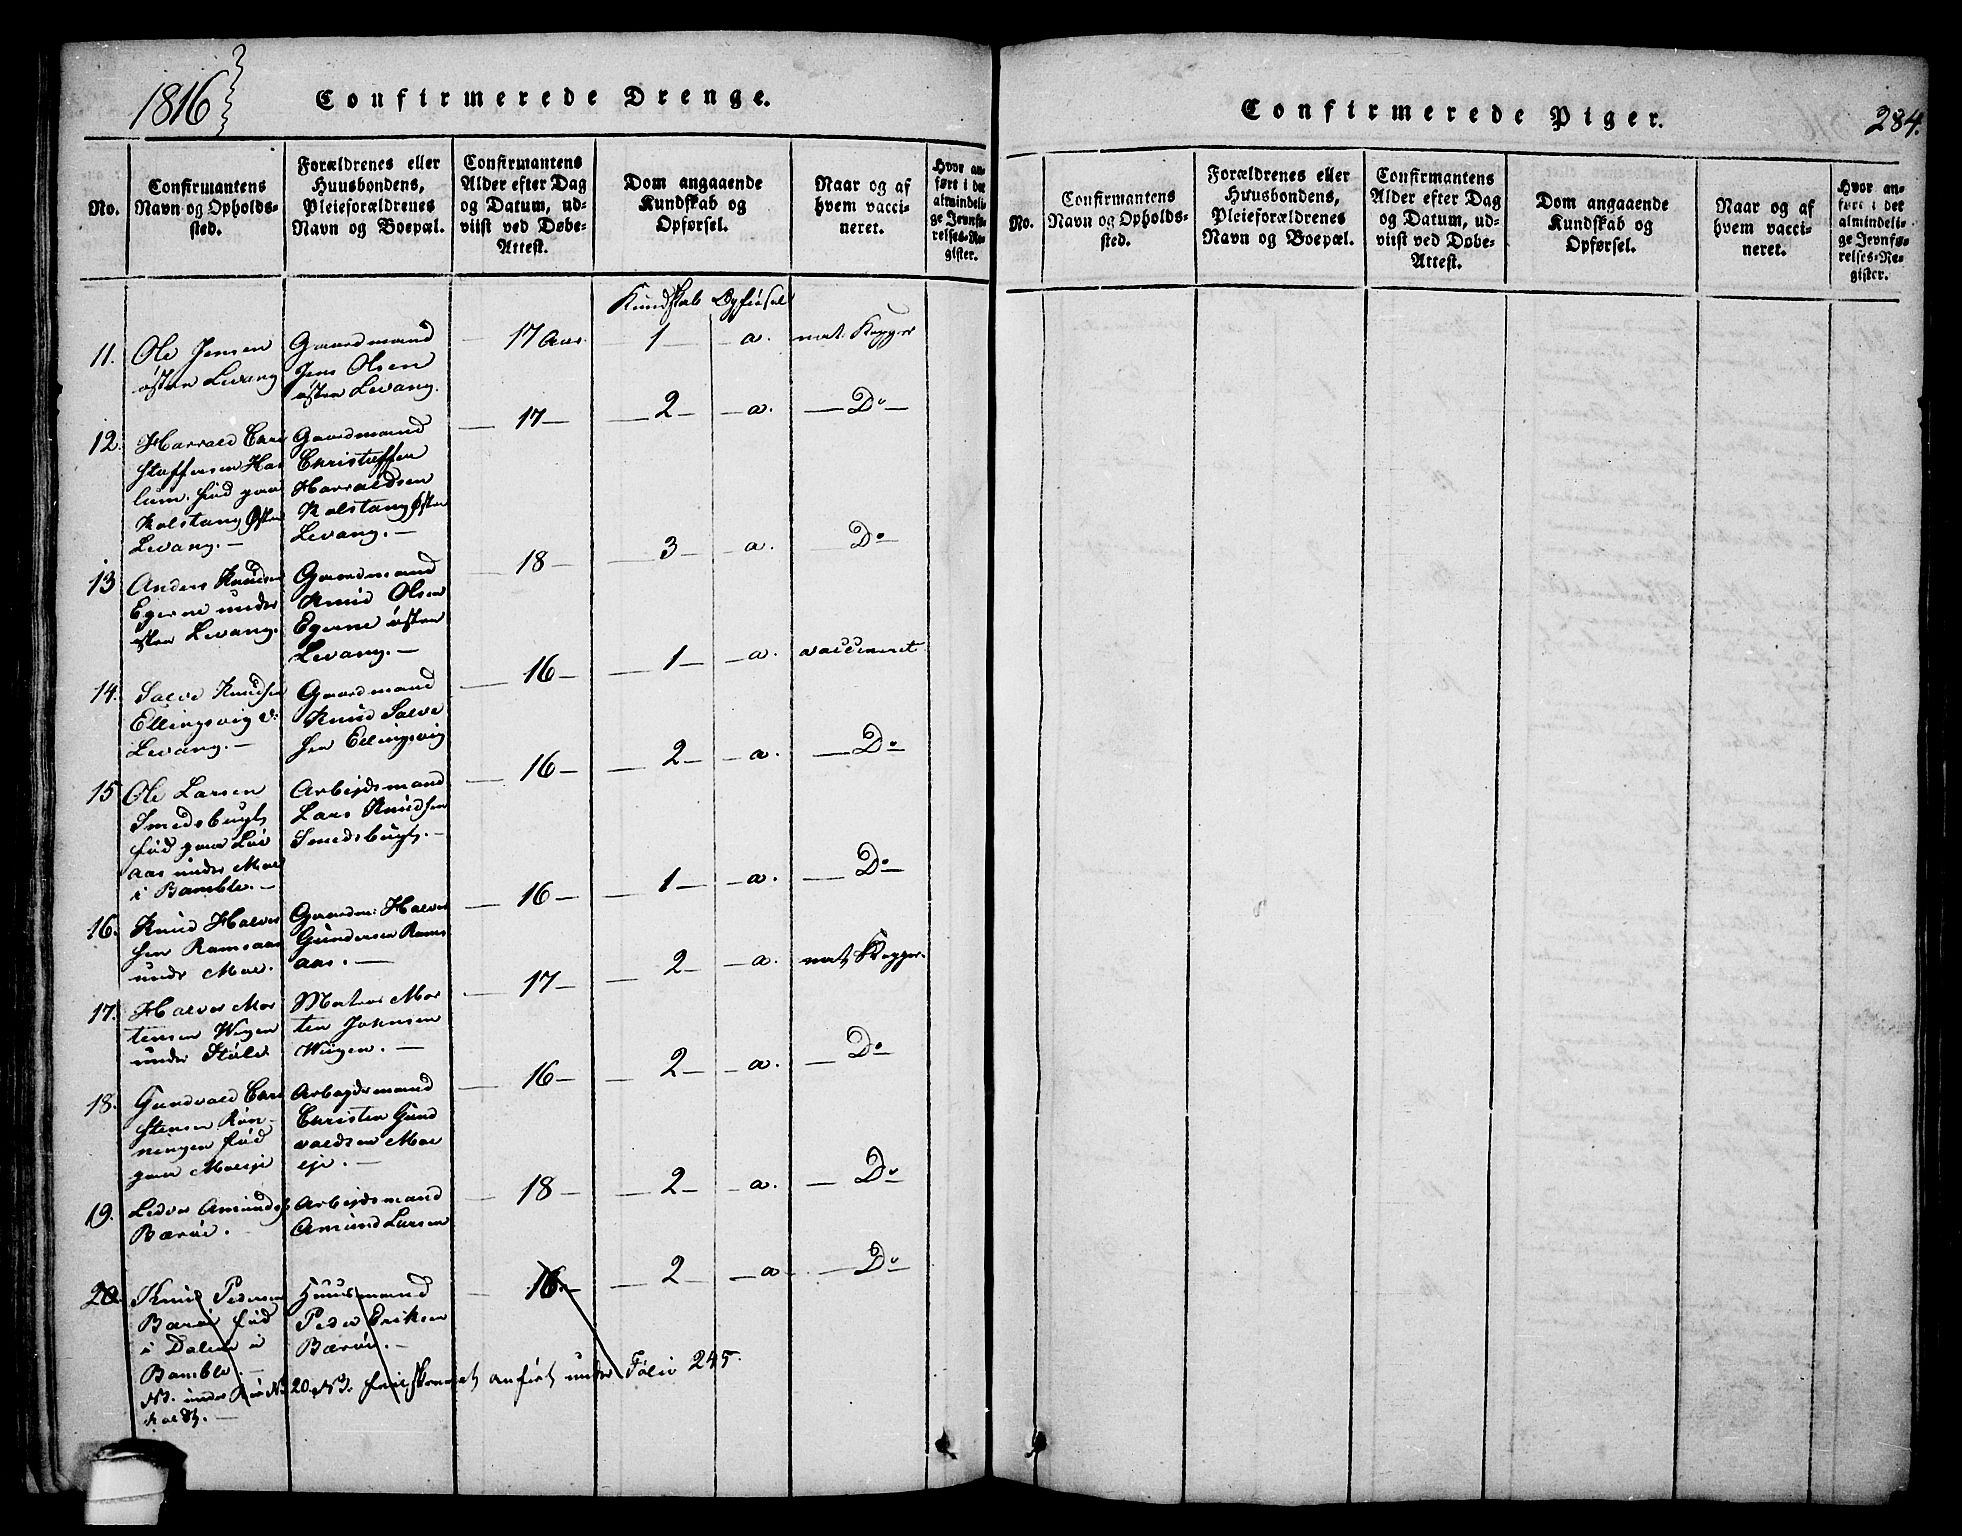 1816
Confirmerede Drenge.
No.
Confirmantens
Navn og Opholds-
sted.
Forældrenes eller
Huusbondens,
Pleieforældrenes
Navn og Boepæl.
Confirmantens
Alder efter Dag
og Datum, ud-
viist ved Døbe-
Attest.
Dom angaaende
Kundskab og
Opførsel.
Naar og af
hvem vacci-
neret.
Hvor an-
ført i det
almindeli-
ge Jevnfø-
relses-Re-
gister.
Kundskab Opførsel
11.
Ole Jensen
østre Levang
Gaardmand
Jens Olsen
østre Levang.
17 Aar.
1
a.
nat. Kopper
12.
Harrald Chri
stoffersen Has
lum. fød paa
Kolstang Østre
Levang.
Gaardmand
Christoffer
Harraldsen
Kolstang Østre
Levang.
17
2
a.
Do
13
Anders Knudsen
Egerne under
østre Levang.
Gaardmand
Knud Olsen
Egerne østre
Levang.
18
3
a.
Do
14.
Salve Knudsen
Ellingsvig v:
Levang.
Gaardmand
Knud Salve
sen Ellingsvig
16
1
a.
vaccineret
15
Ole Larsen
Smedsbugt
fød paa Lø
aas under Moe
i Bamble.
Arbejdsmand
Lars Knudsen
Smedsbugt.
16
2
a.
Do
16.
Knud Halvor
sen Ramsaas
under Moe.
Gaardm: Halvor
Gundersen Rams
aas.
16
1
a.
Do
17.
Halvor Mor
tensen Wigen
under Støle
Matros Mor
ten Johnsen
Wigen.
17
2
a.
nat Kopper.
18.
Gundvald Chri
stensen Røn-
ningen fød
paa Moeeje
Arbejdsmand
Christen Gund
valdsen Moe
eje.
16
2
a.
Do
19.
Ledvor Amunds
Barøe.
Arbejdsmand
Amund Larsen
18
2
a.
Do
20
Knud Pedersen
Barøe fød
i Dalene i
Bamble.
Huusmand
Peder Eriksen
Barøe.
16.
2
a
Do
NB. under No 20 NB. anført under Folio 245.
Confirmerede Piger.
284.
No.
Confirmantens
Navn og Opholds-
sted.
Forældrenes eller
Huusbondens,
Pleieforældrenes
Navn og Boepæl.
Confirmantens
Alder efter Dag
og Datum, ud-
viist ved Døbe-
Attest.
Dom angaaende
Kundskab og
Opførsel.
Naar og af
hvem vacci-
neret.
Hvor an-
ført i det
almindeli-
ge Jevnfø-
relses-Re-
gister.